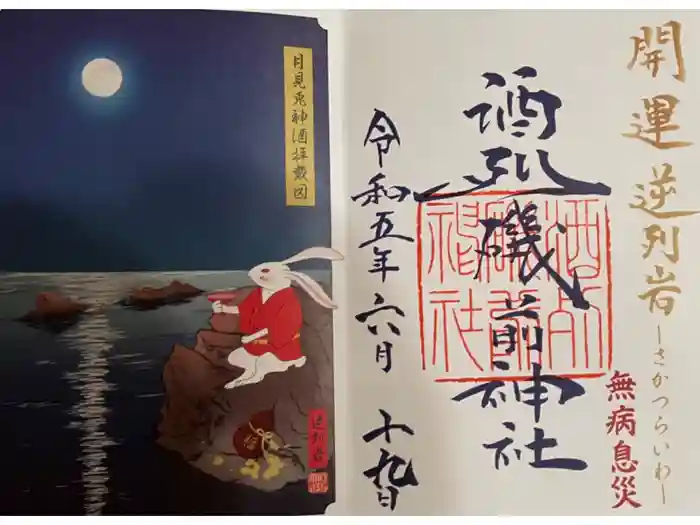 開運 逆列岩
ーさかつらいわー
無病息災
酒列磯前神社
酒列磯前神社
令和五年 六月 十九日
月見兎神酒拝戴図
逆列岩